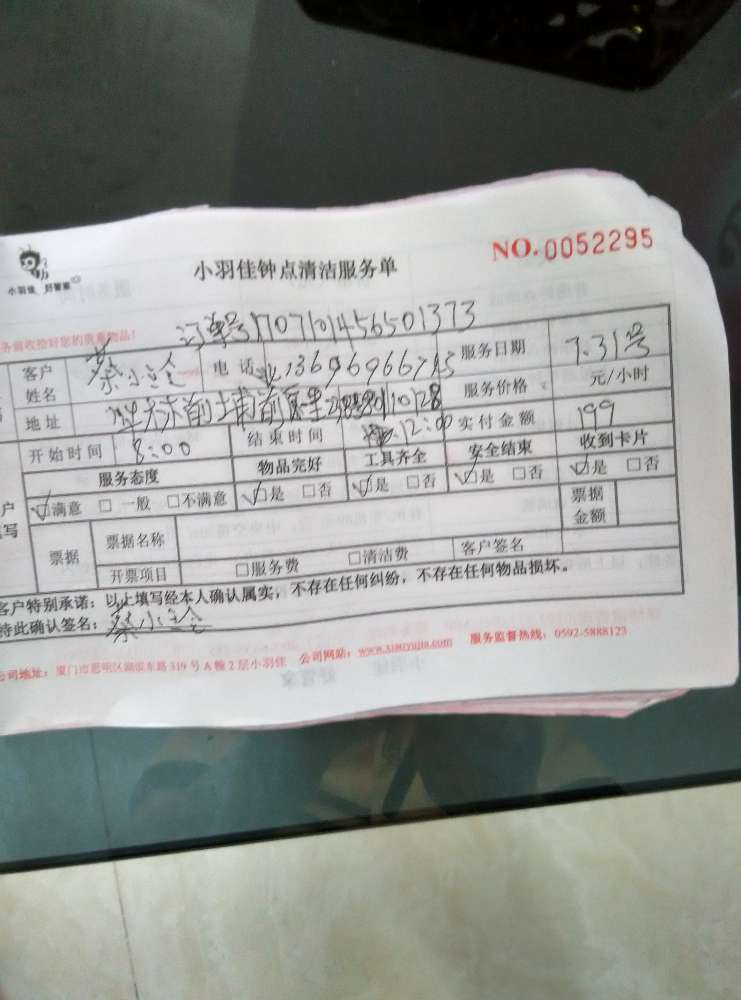 小羽佳 好管家
小羽佳钟点清洁服务单
NO.0052295
务前收拾好您的贵重物品!
订单号1707101456501373
客户姓名 蔡小 电话 服务日期 7.31号
地址 前埔前 服务价格 元/小时
开始时间 8:00 结束时间 12:00 实付金额 199
服务态度 物品完好 工具齐全 安全结束 收到卡片
满意 一般 不满意 是 否 是 否 是 否 是 否
票据 票据名称 票据金额
开票项目 服务费 清洁费 客户签名
客户特别承诺:以上填写经本人确认属实,不存在任何纠纷,不存在任何物品损坏。
特此确认签名:蔡小
公司地址:厦门市思明区湖滨东路319号A幢2层小羽佳 公司网站:www.xiaoyujia.com 服务监督热线:0592-5888123